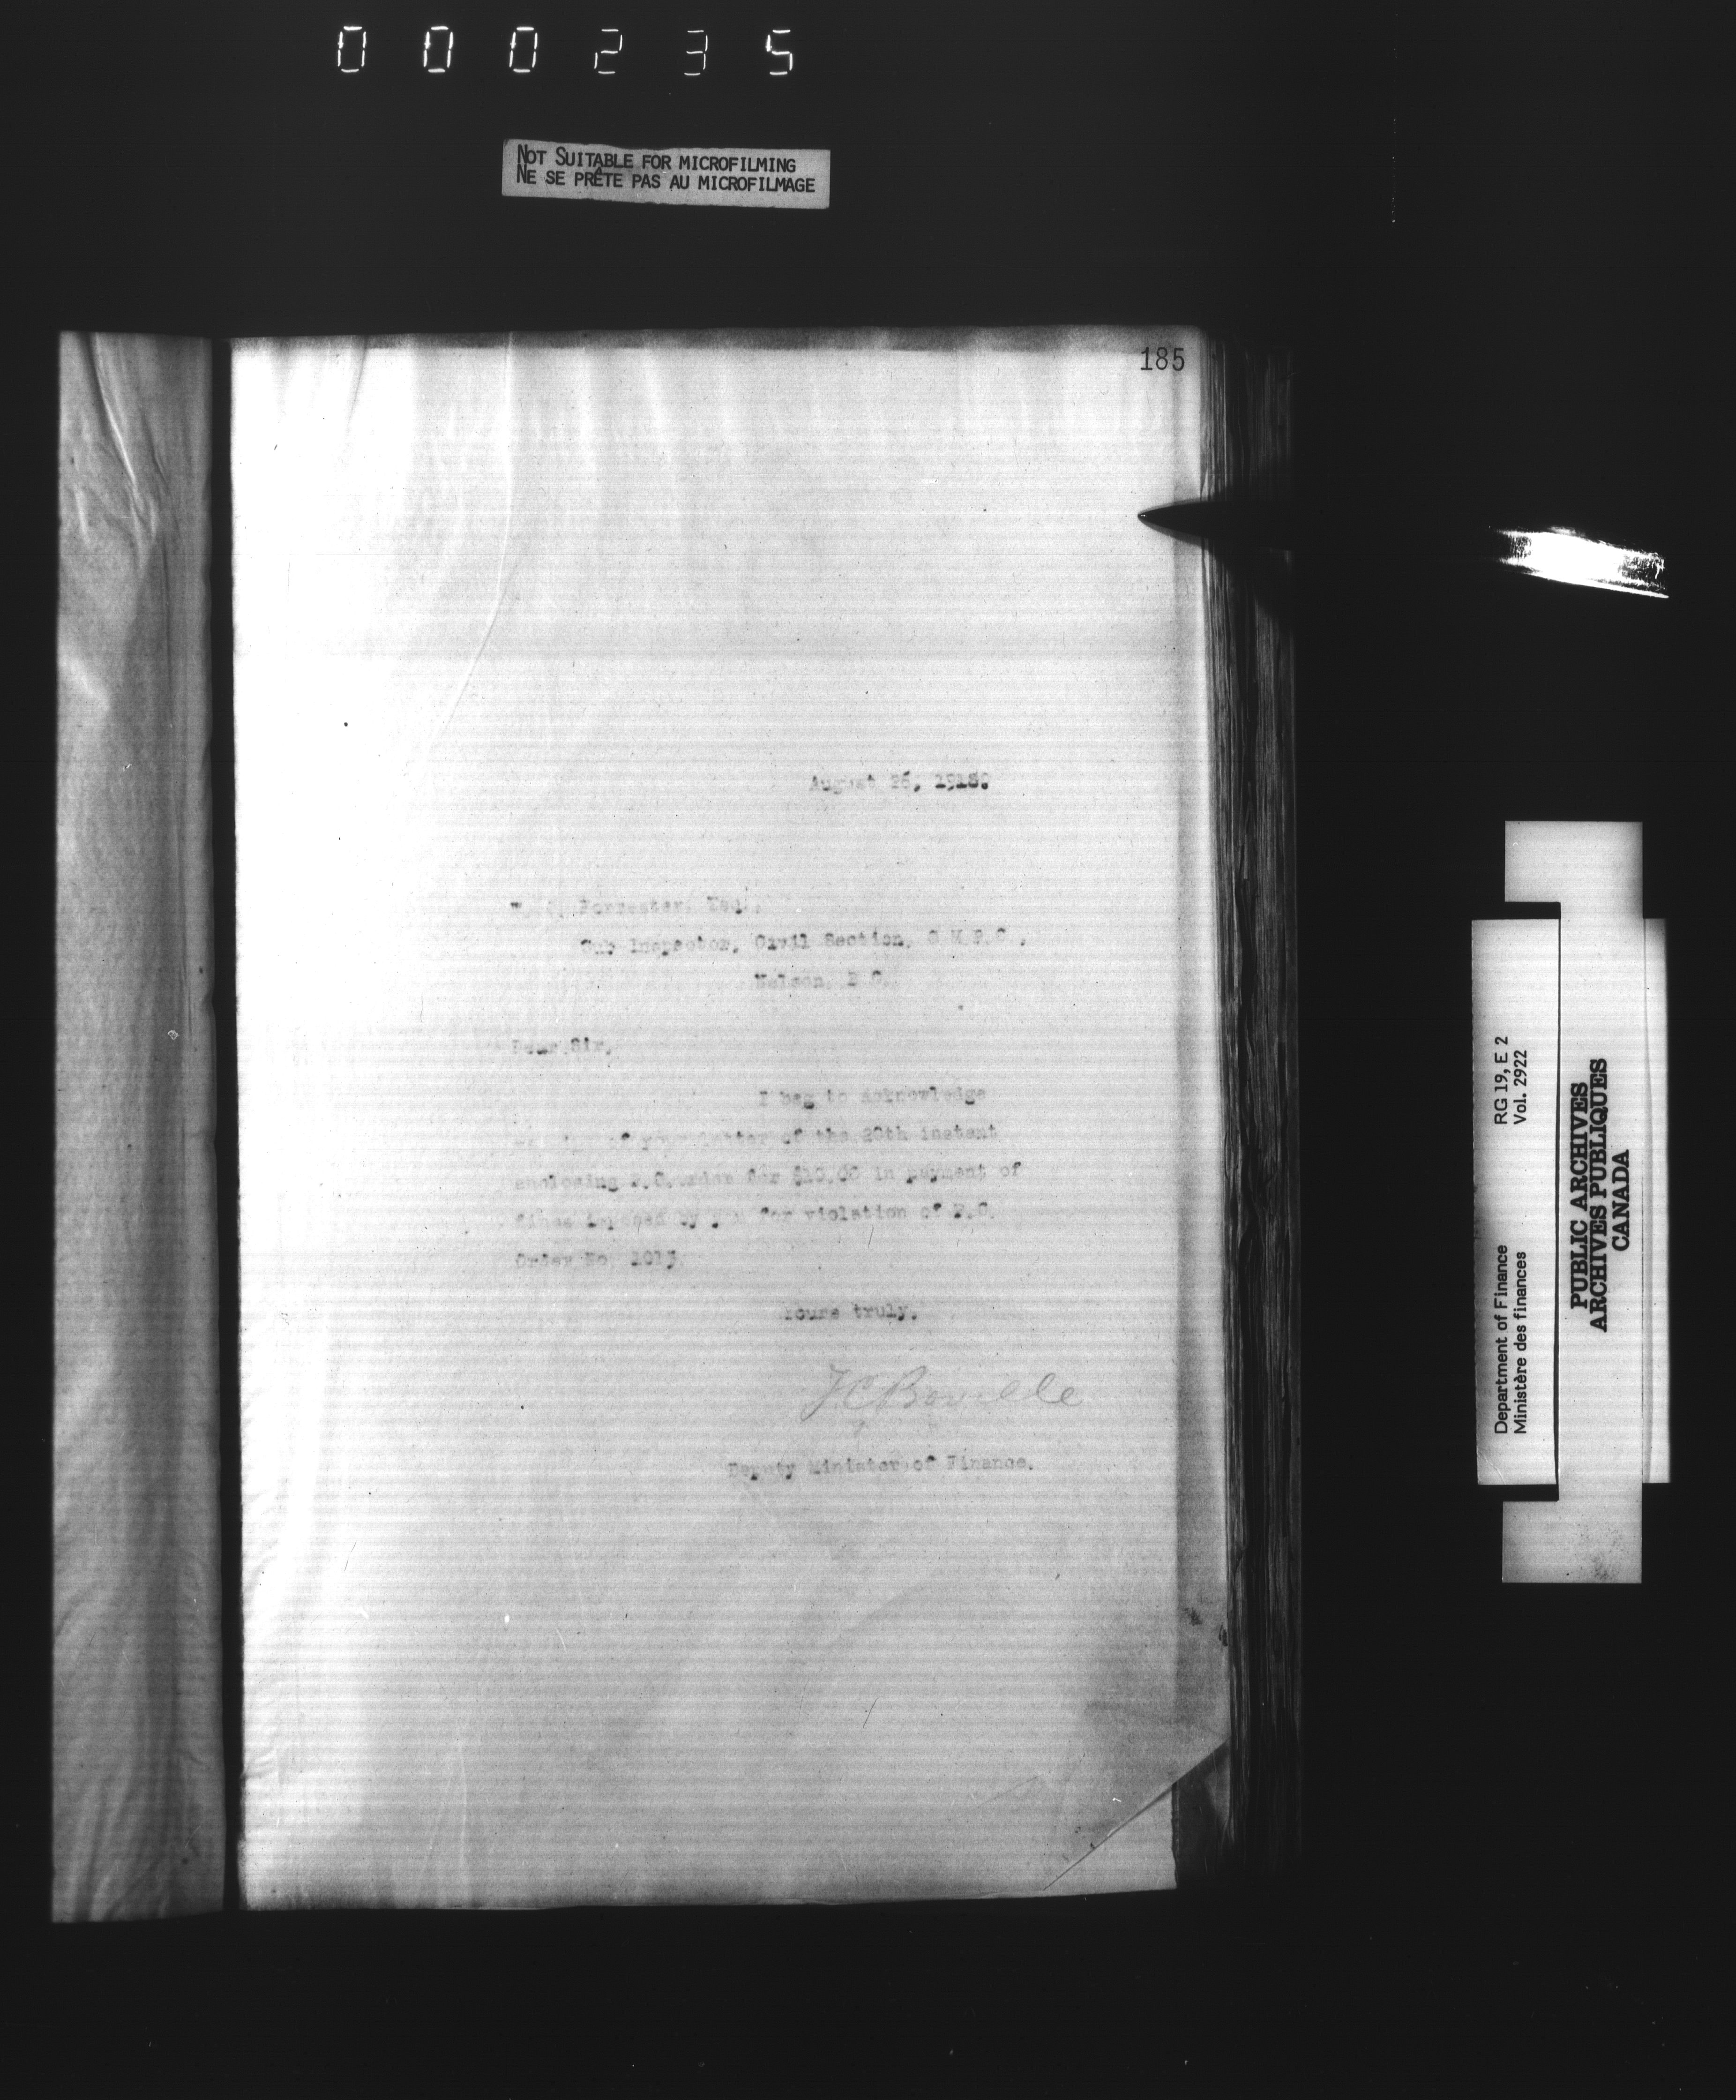 000235
NOT SUITABLE FOR MICROFILMING
NE SE PRÊTE PAS AU MICROFILMAGE
185
August 26, 1918.
W. Forrester, Esq.,
Sub-Inspector, Civil Section, C.M.P.C.,
Nelson, B.C.
Dear Sir,
I beg to acknowledge
of your letter of the 20th instant
enclosing P.O. order for $10.00 in payment of
fines imposed by you for violation of P.C.
Order No. 1013.
Yours truly,
T C Boville
Deputy Minister of Finance.
Department of Finance RG 19, E 2
Ministère des finances Vol. 2922
PUBLIC ARCHIVES
ARCHIVES PUBLIQUES
CANADA